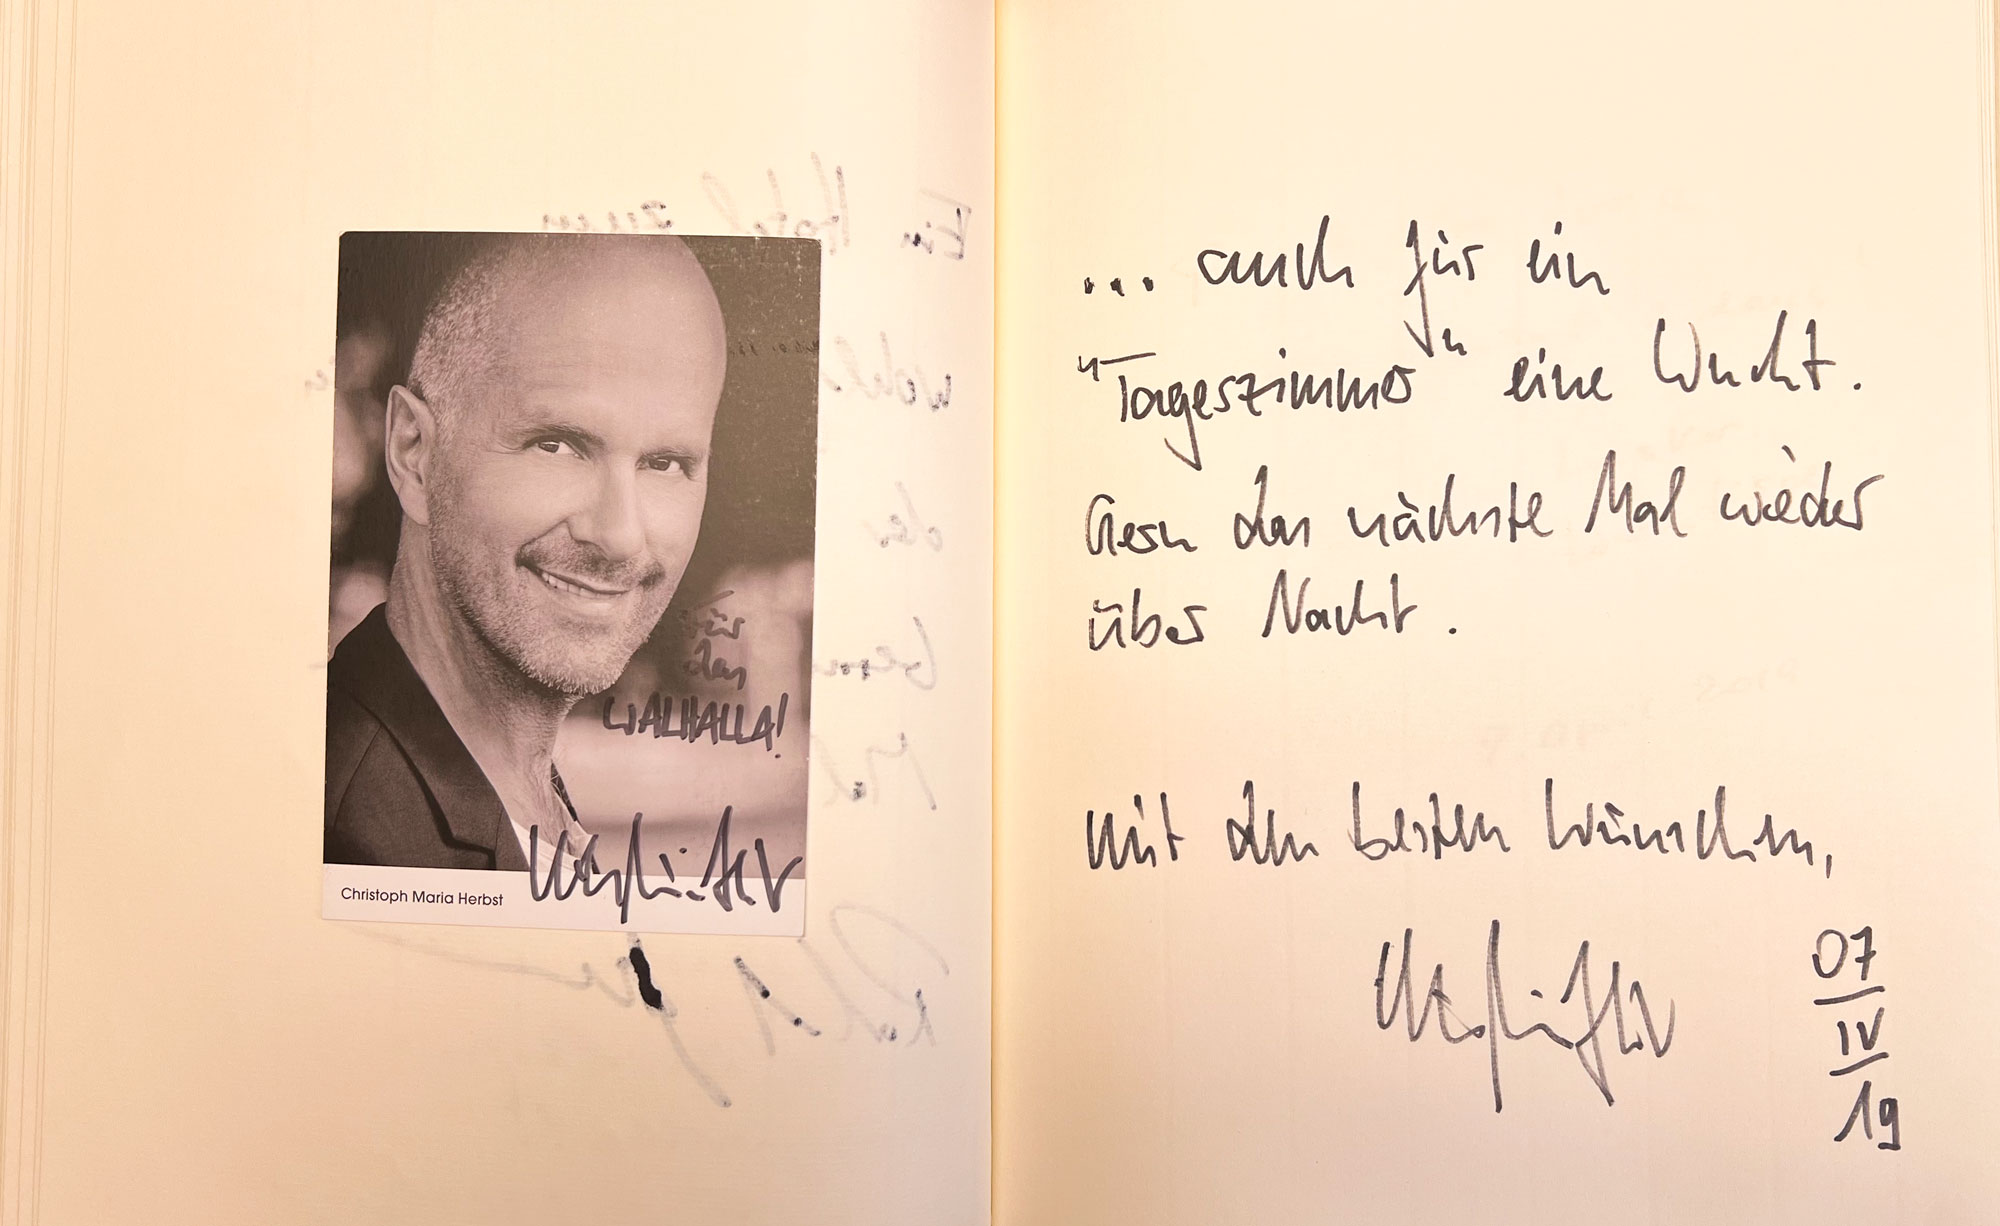 Für
das
WALHALLA!
Christoph Maria Herbst
... auch für ein
"Tageszimmer" eine Wucht.
Gern das nächste Mal wieder
über Nacht.
Mit den besten Wünschen,
07
IV
19
Ein Hotel zum